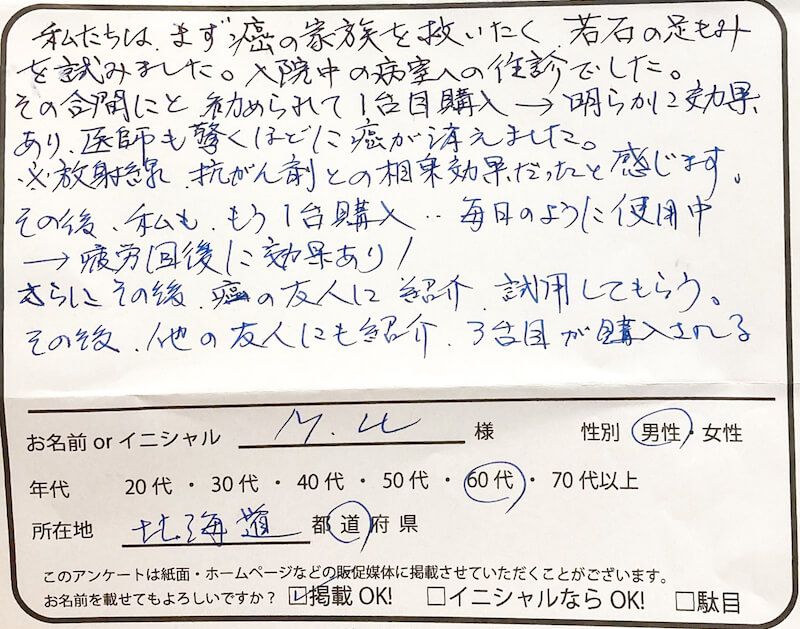 私たちは、まず癌の家族を救いたく、若石の足もみ
を試みました。入院中の病室への往診でした。
その合間にと勧められて1台目購入→明らかに効果
あり、医師も驚くほどに癌が消えました。
※放射線、抗がん剤との相乗効果だったと感じます。
その後、私も、もう1台購入‥毎日のように使用中
→疲労回後に効果あり!
さらにその後、癌の友人に紹介、試用してもらう。
その後、他の友人にも紹介、3台目が購入される
お名前 or イニシャル 様 性別 男性・女性
年代 20代・30代・40代・50代・60代・70代以上
所在地 北海道 都道府県
このアンケートは紙面・ホームページなどの販促媒体に掲載させていただくことがございます。
お名前を載せてもよろしいですか? ☑掲載OK! □イニシャルならOK! □駄目